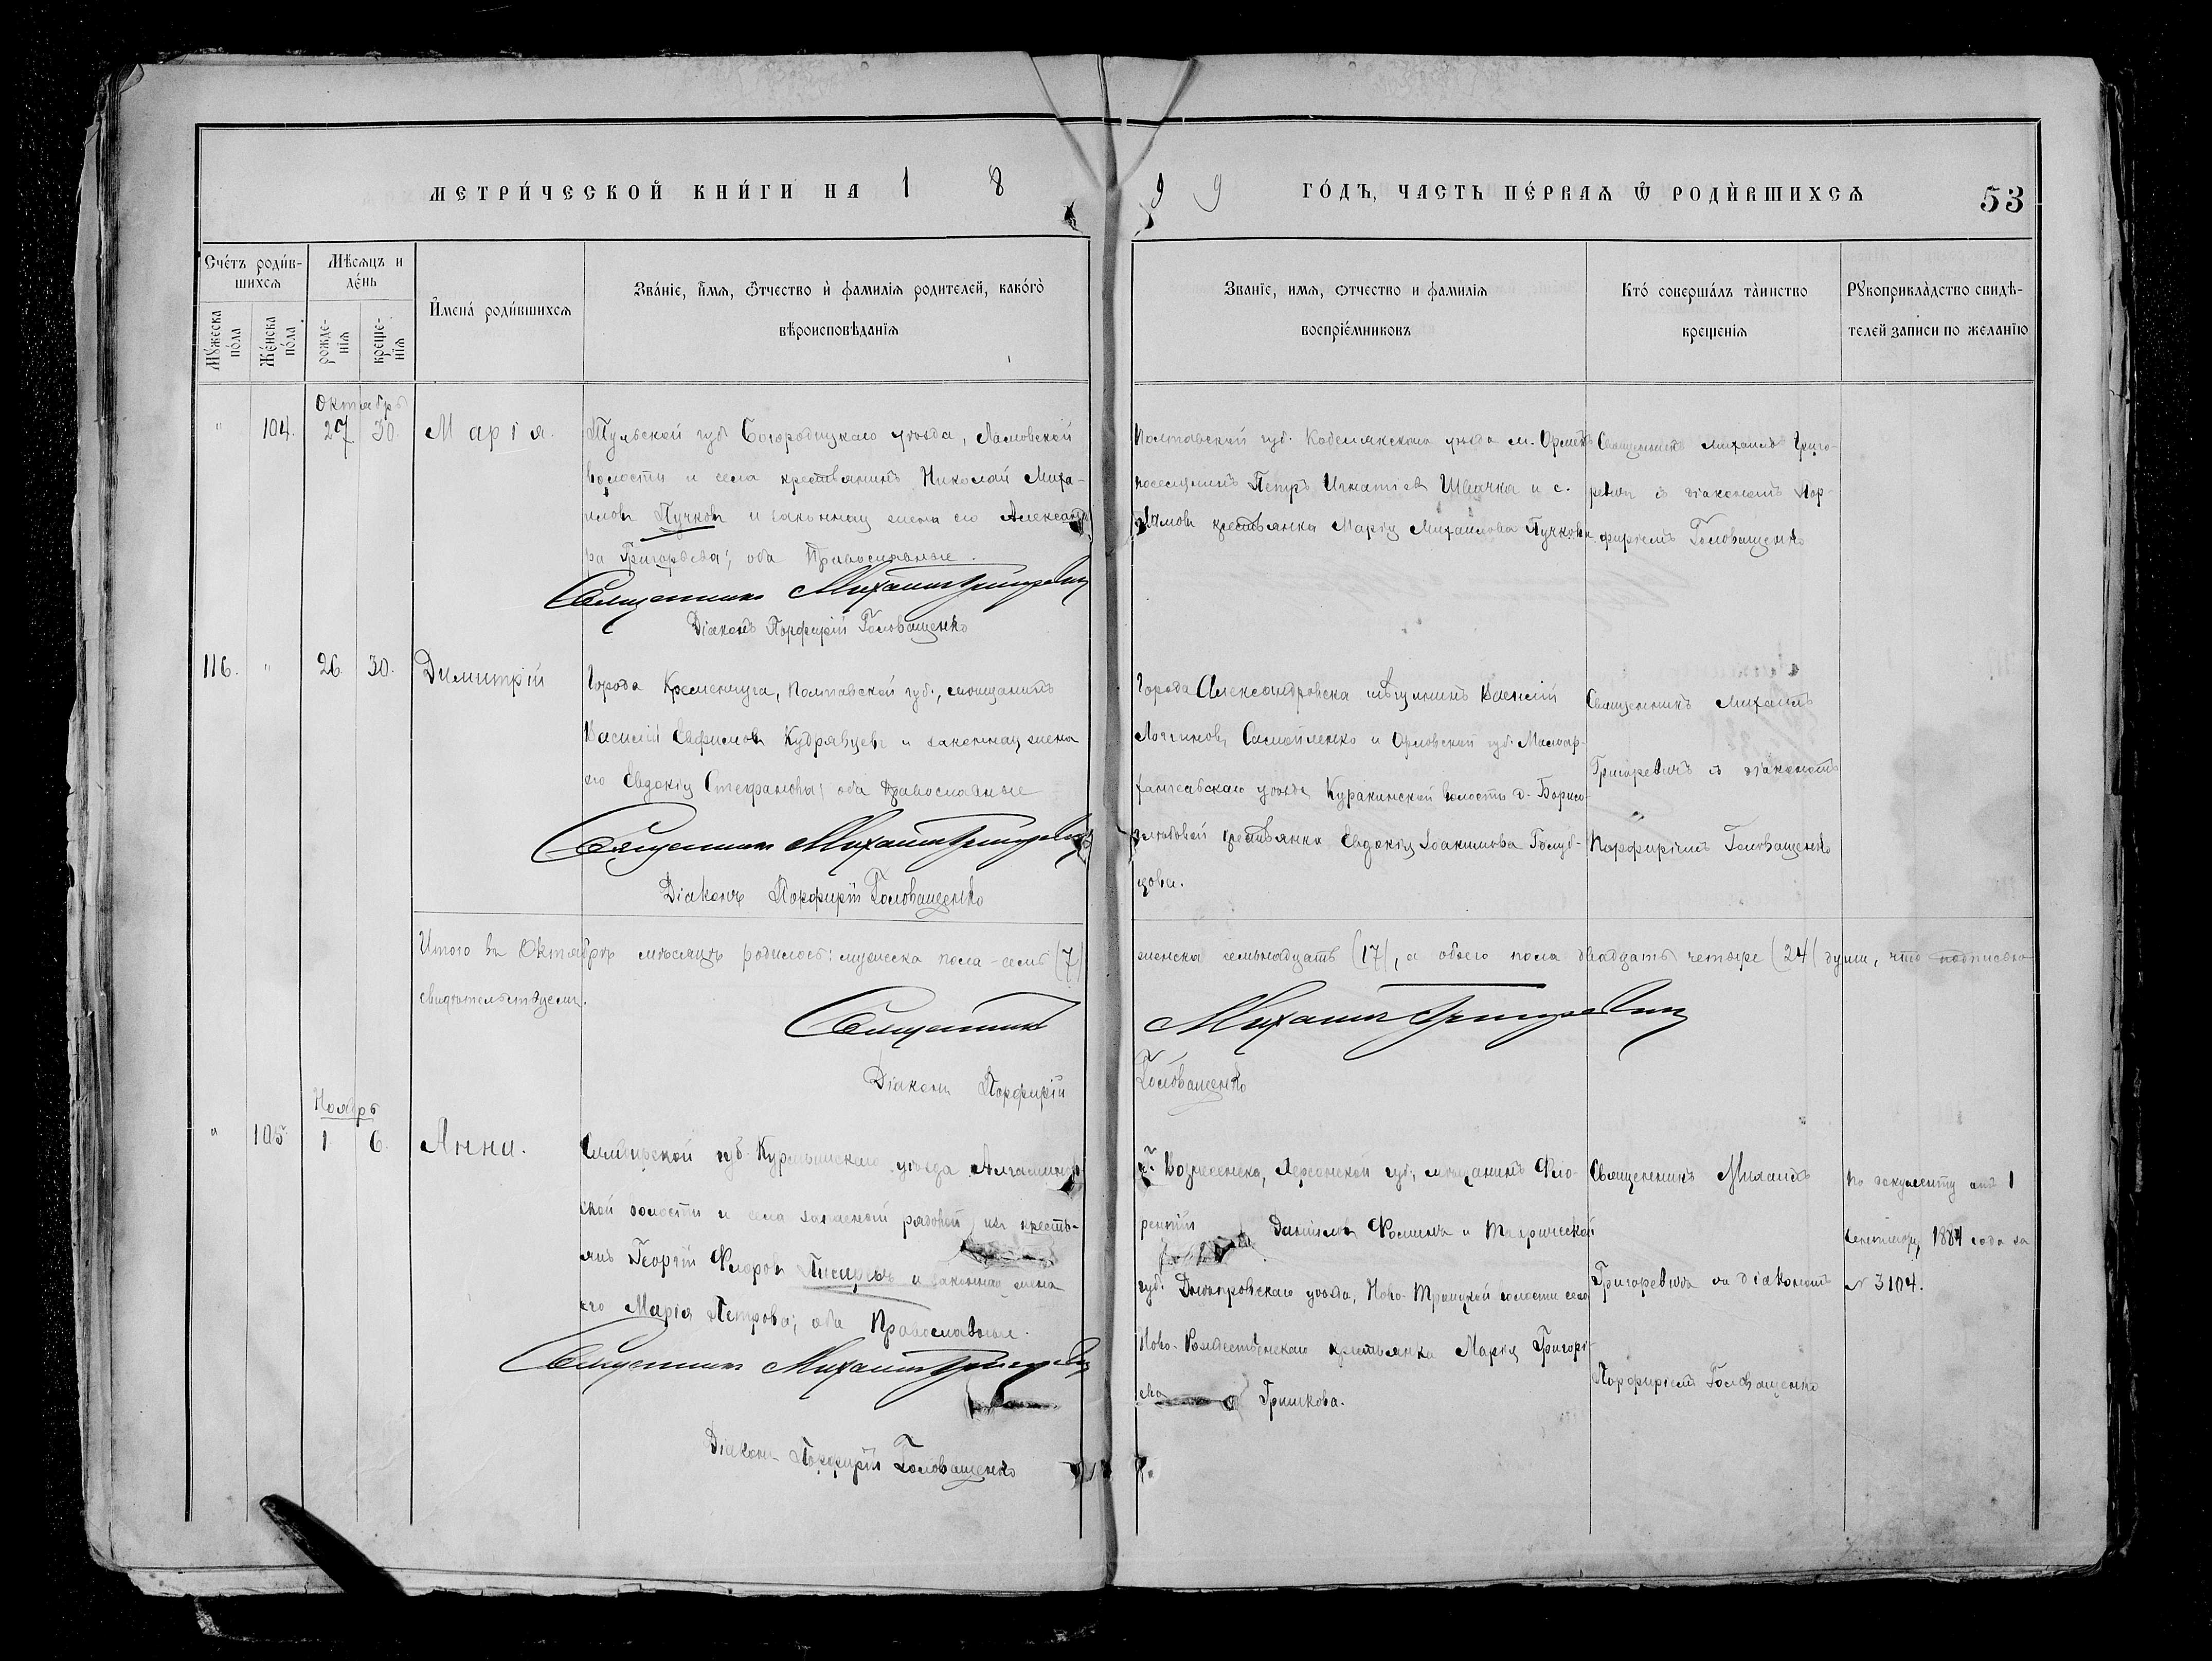 МЕТРИ́ЧЕСКОЙ КНИ́ГИ НА 1 8
9 9 ГО́ДЪ, ЧАСТЬ ПЕ́РВАѦ Ѡ҆ РОДИ́ВШИХСѦ
53
Сче́тъ роди́в-
шихсѧ
Мѣсѧцъ и
де́нь
И҆мена̀ роди́вшихсѧ
Зва́нїе, и҆́мѧ, ѻ҆́тчество и҆ фамилїѧ родителей, како́гѡ
вѣроисповѣданїѧ
Мꙋжеска
по́ла
Же́нска
по́ла
рожде-
нїѧ
креще-
нїѧ
Званїе, имѧ, ѻтчество и фамилїѧ
воспрїе́мниковъ
Кто́ соверша́лъ та̀инство
крещенїѧ
Рꙋкоприкла̀дство свидѣ-
телей записи по желанїю
Октябрь
" 104. 27 30. Марія.
Тульской губ. Богородицкаго уѣзда, Ламовской
волости и села крестьянинъ Николай Миха-
иловъ Пучковъ и законная жена его Александ-
ра Григорьева; оба Православные.
Священникъ Михаилъ Григоревичъ
Діаконъ Порфирій Головащенко
Полтавской губ. Кобелякскаго уѣзда м.
поселянинъ Петръ Игнатіевъ Швачка и с.
Ламовъ крестьянка Марія Михаилова Пучкова
Священникъ Михаилъ Григо-
ревичъ съ діакономъ Пор-
фиріемъ Головащенко
116. " 26. 30. Димитрій
Города Кременчуга, Полтавской губ., мѣщанинъ
Василій Евфимовъ Кудрявцевъ и законная жена
его Евдокія Стефанова; оба православные
Священникъ Михаилъ Григоревичъ
Діаконъ Порфирій Головащенко
Города Александровска мѣщанинъ Василій
Логгиновъ Самойленко и Орловской губ. Малоар-
хангельскаго уѣзда Куракинской волости д. Борисо-
глѣбовой крестьянка Евдокія Іоакимова Голуб-
цова.
Священникъ Михаилъ
Григоревичъ съ діакономъ
"
Порфиріемъ Головащенко
Итого въ Октябрѣ мѣсяцѣ родилось: мужеска пола - семь (7)
женска семьнадцать (17), а обоего пола двадцать четыре (24) души, что подписью
свидѣтельствуемъ.
Священникъ
Михаилъ Григоревичъ
Діаконъ Порфирій
Головащенко
Ноябрь
" 105. 1 6. Анна.
Симбирской губ. Курмышскаго уѣзда Алгашинов-
ской волости и села запасной рядовой изъ кресть-
янъ Георгій Флоровъ и законная жена
его Марія Петрова; оба Православные.
Священникъ Михаилъ Григоревичъ
Діаконъ Порфирій Головащенко
г. Вознесенска, Херсонской губ., мѣщанинъ Фло-
рентій Даніиловъ Фоминъ и Таврической
губ. Днѣпровскаго уѣзда, Ново-Троицкой волости села
Ново-Рождественскаго крестьянка Марія Григорі-
ева Гришкова.
Священникъ Михаилъ
Григоревичъ съ діакономъ
Порфиріемъ Головащенко
по документу отъ 1
Сентября 1884 года за
№ 3104.